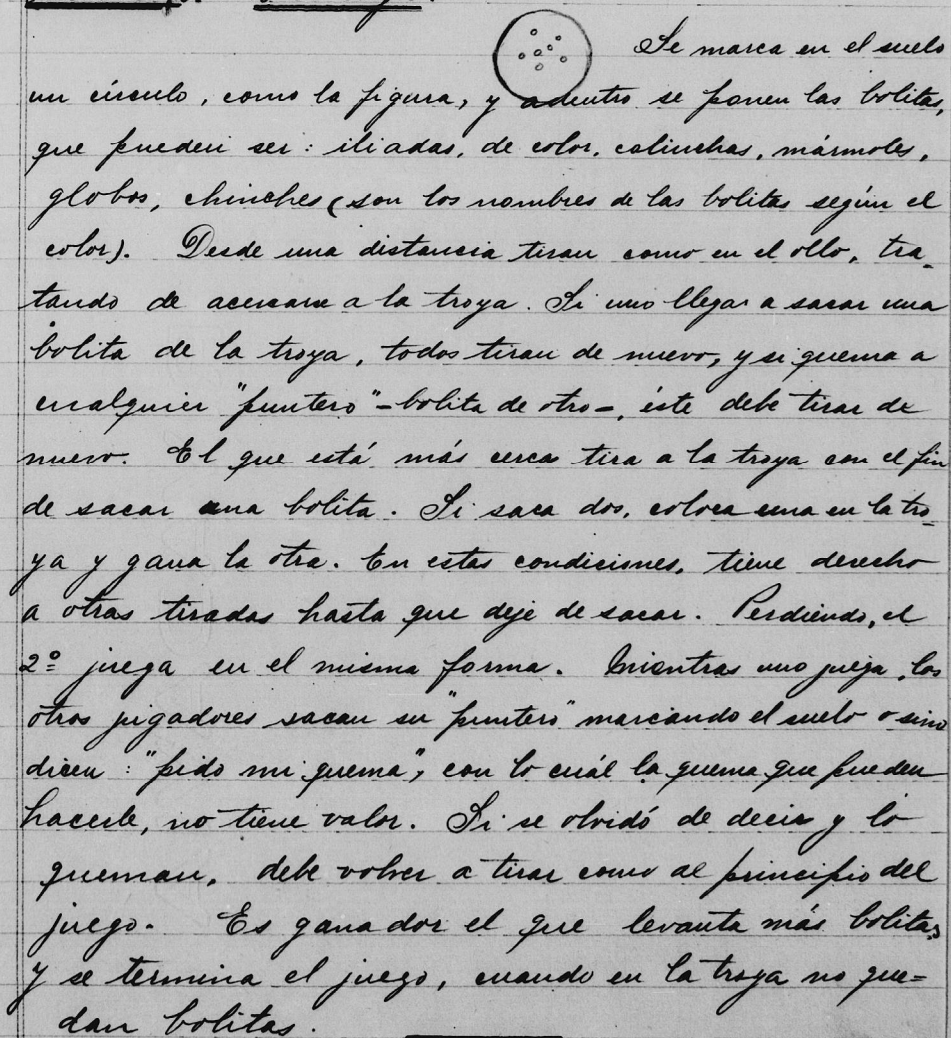 Se marca en el suelo
un círculo, como la figura, y adentro se ponen las bolitas,
que pueden ser: iliadas, de color, calinchas, mármoles,
globos, chinches (son los nombres de las bolitas según el
color). Desde una distancia tiran como en el ollo, tra-
tando de acercarse a la troya. Si uno llegar a sacar una
bolita de la troya, todos tiran de nuevo, y si quema a
cualquier "puntero" - bolita de otro -, éste debe tirar de
nuevo. El que está más cerca tira a la troya con el fin
de sacar una bolita. Si saca dos, coloca una en la tro-
ya y gana la otra. En estas condiciones, tiene derecho
a otras tiradas hasta que deje de sacar. Perdiendo, el
2º juega en el misma forma. Mientras uno juega, los
otros jugadores sacan su "puntero" marcando el suelo o sino
dicen: "pido mi quema", con lo cuál la quema que pueden
hacerle, no tiene valor. Si se olvidó de decir y lo
queman, debe volver a tirar como al principio del
juego. Es ganador el que levanta más bolitas,
y se termina el juego, cuando en la troya no que=
dan bolitas.